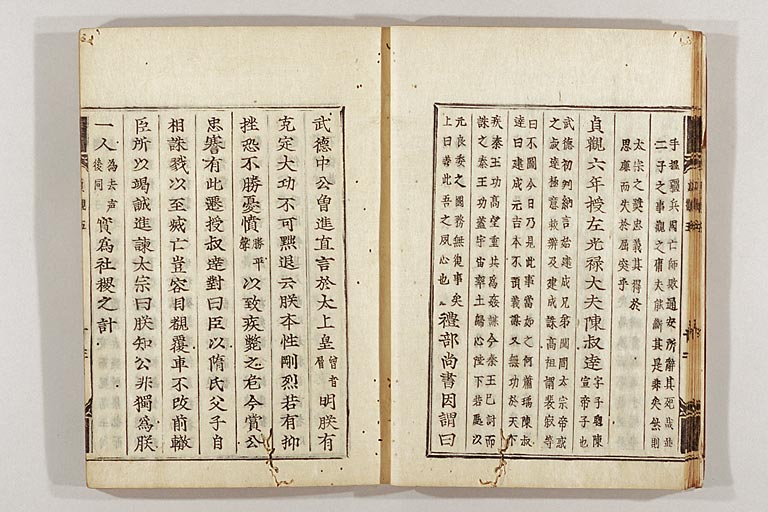 手握彊兵國亡師敗通安所辭其死哉此
二子之事觀之庸夫能斷其是非矣然則
太宗之獎忠義其得於
思廉而失於屈突乎
貞觀六年授左光祿大夫陳叔達字子聰陳宣帝子也
武德初判納言始建成兄弟鬩間太宗帝惑
之叔達極意救辨及建成誅高祖謂裴寂等
曰不圖今日乃見此事當如之何蕭瑀陳叔
達曰建成元吉本不預義謀又無功於天下
疾秦王功高望重共為姦謀今秦王已討而
誅之秦王功蓋宇宙率土歸心陛下若處以
元良委之國務無復事矣
上曰善此吾之夙心也
禮部尚書因謂曰
武德中公曾進直言於太上皇曾音層明朕有
克定大功不可黜退云朕本性剛烈若有抑
挫恐不勝憂憤勝平聲以致疾斃之危今賞公
忠謇有此遷授叔達對曰臣以隋氏父子自
相誅戮以至滅亡豈容目覩覆車不改前轍
臣所以竭誠進諫太宗曰朕知公非獨為朕
一人為去声後同實為社稷之計